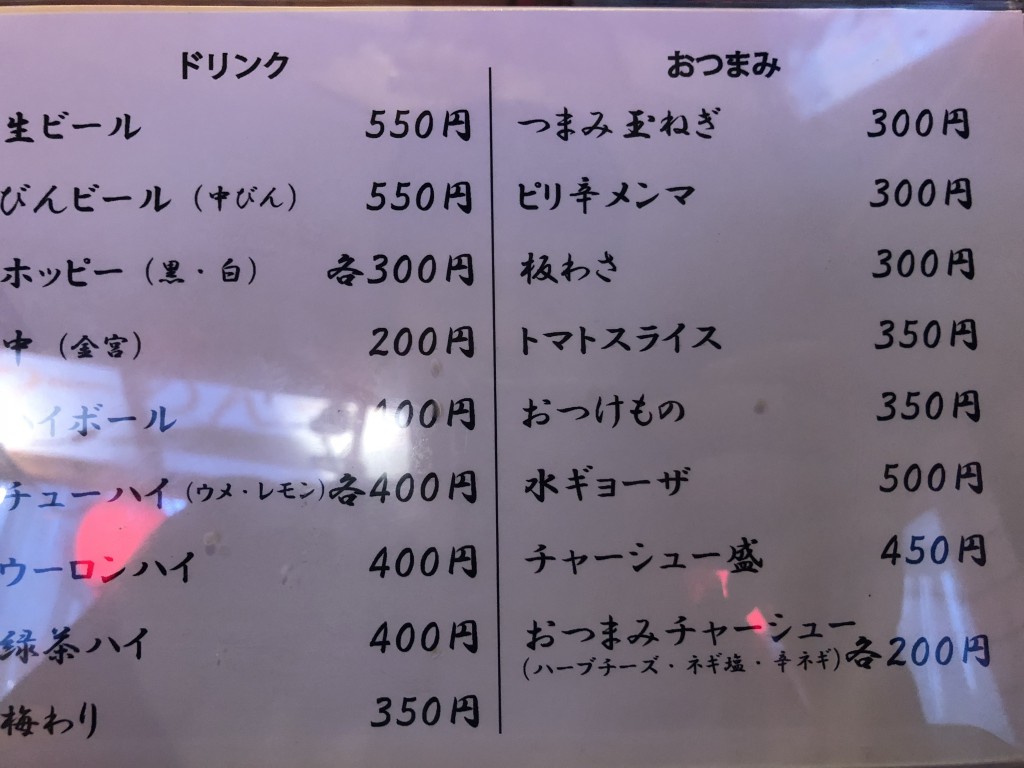 ドリンク
生ビール 550円
びんビール (中びん) 550円
ホッピー (黒・白) 各300円
中 (金宮) 200円
ハイボール 400円
チューハイ (ウメ・レモン) 各400円
ウーロンハイ 400円
緑茶ハイ 400円
梅わり 350円
おつまみ
つまみ玉ねぎ 300円
ピリ辛メンマ 300円
板わさ 300円
トマトスライス 350円
おつけもの 350円
水ギョーザ 500円
チャーシュー盛 450円
おつまみチャーシュー
(ハーブチーズ・ネギ塩・辛ネギ) 各200円